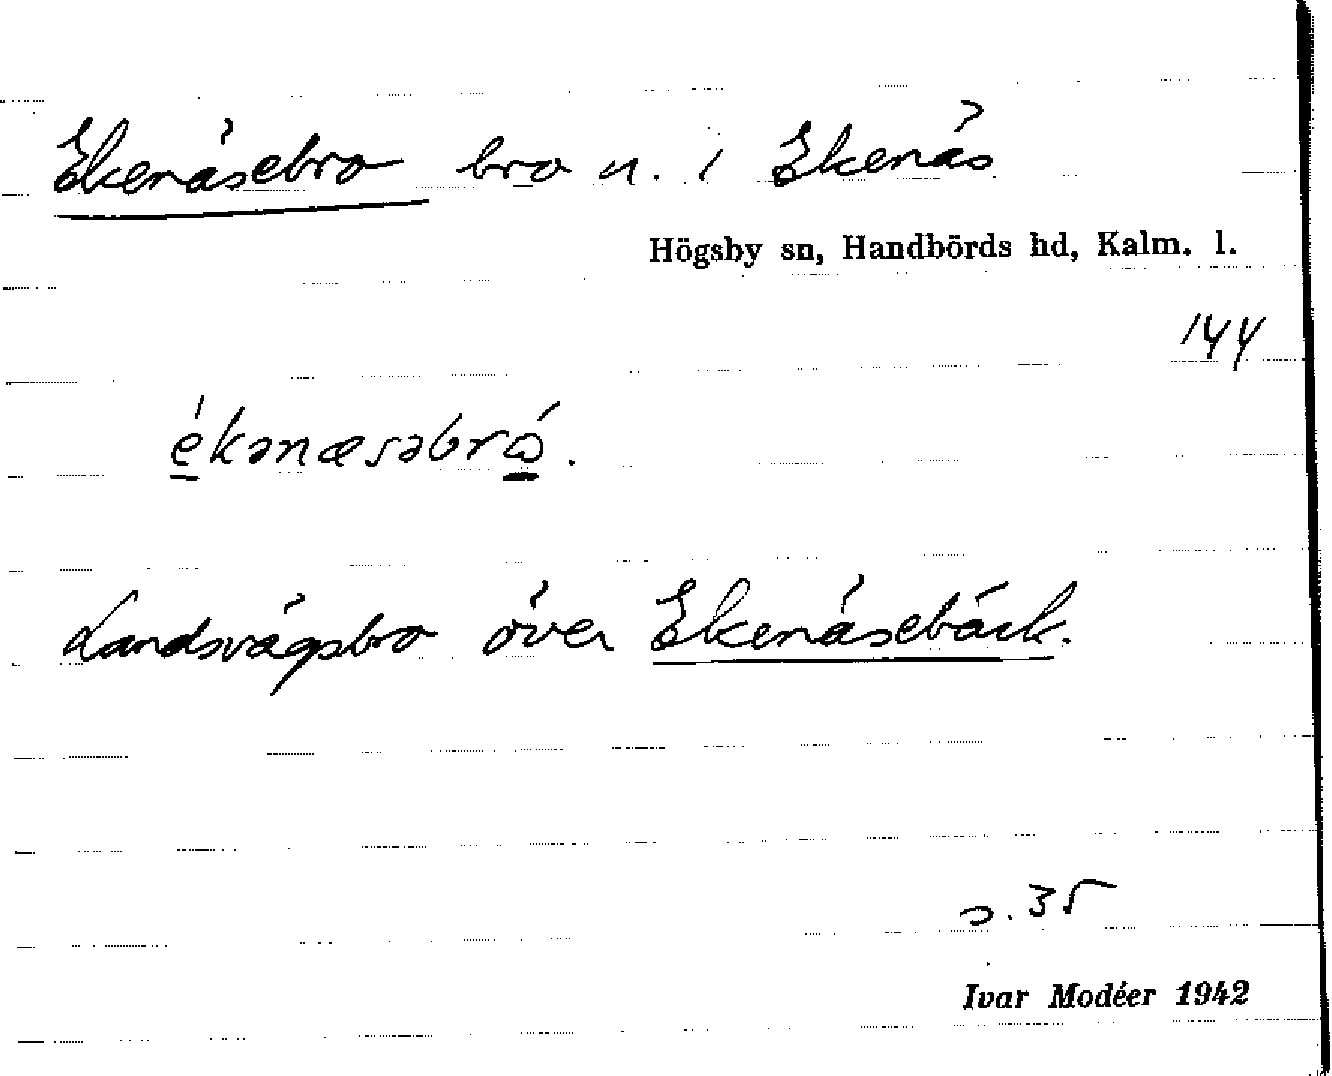 Ekenäsebro bro n. i Ekenäs
Högsby sn, Handbörds hd, Kalm. l.
144
ékənæsəbrώ.
Landsvägsbro över Ekenäsebäck.
s. 35
Ivar Modéer 1942